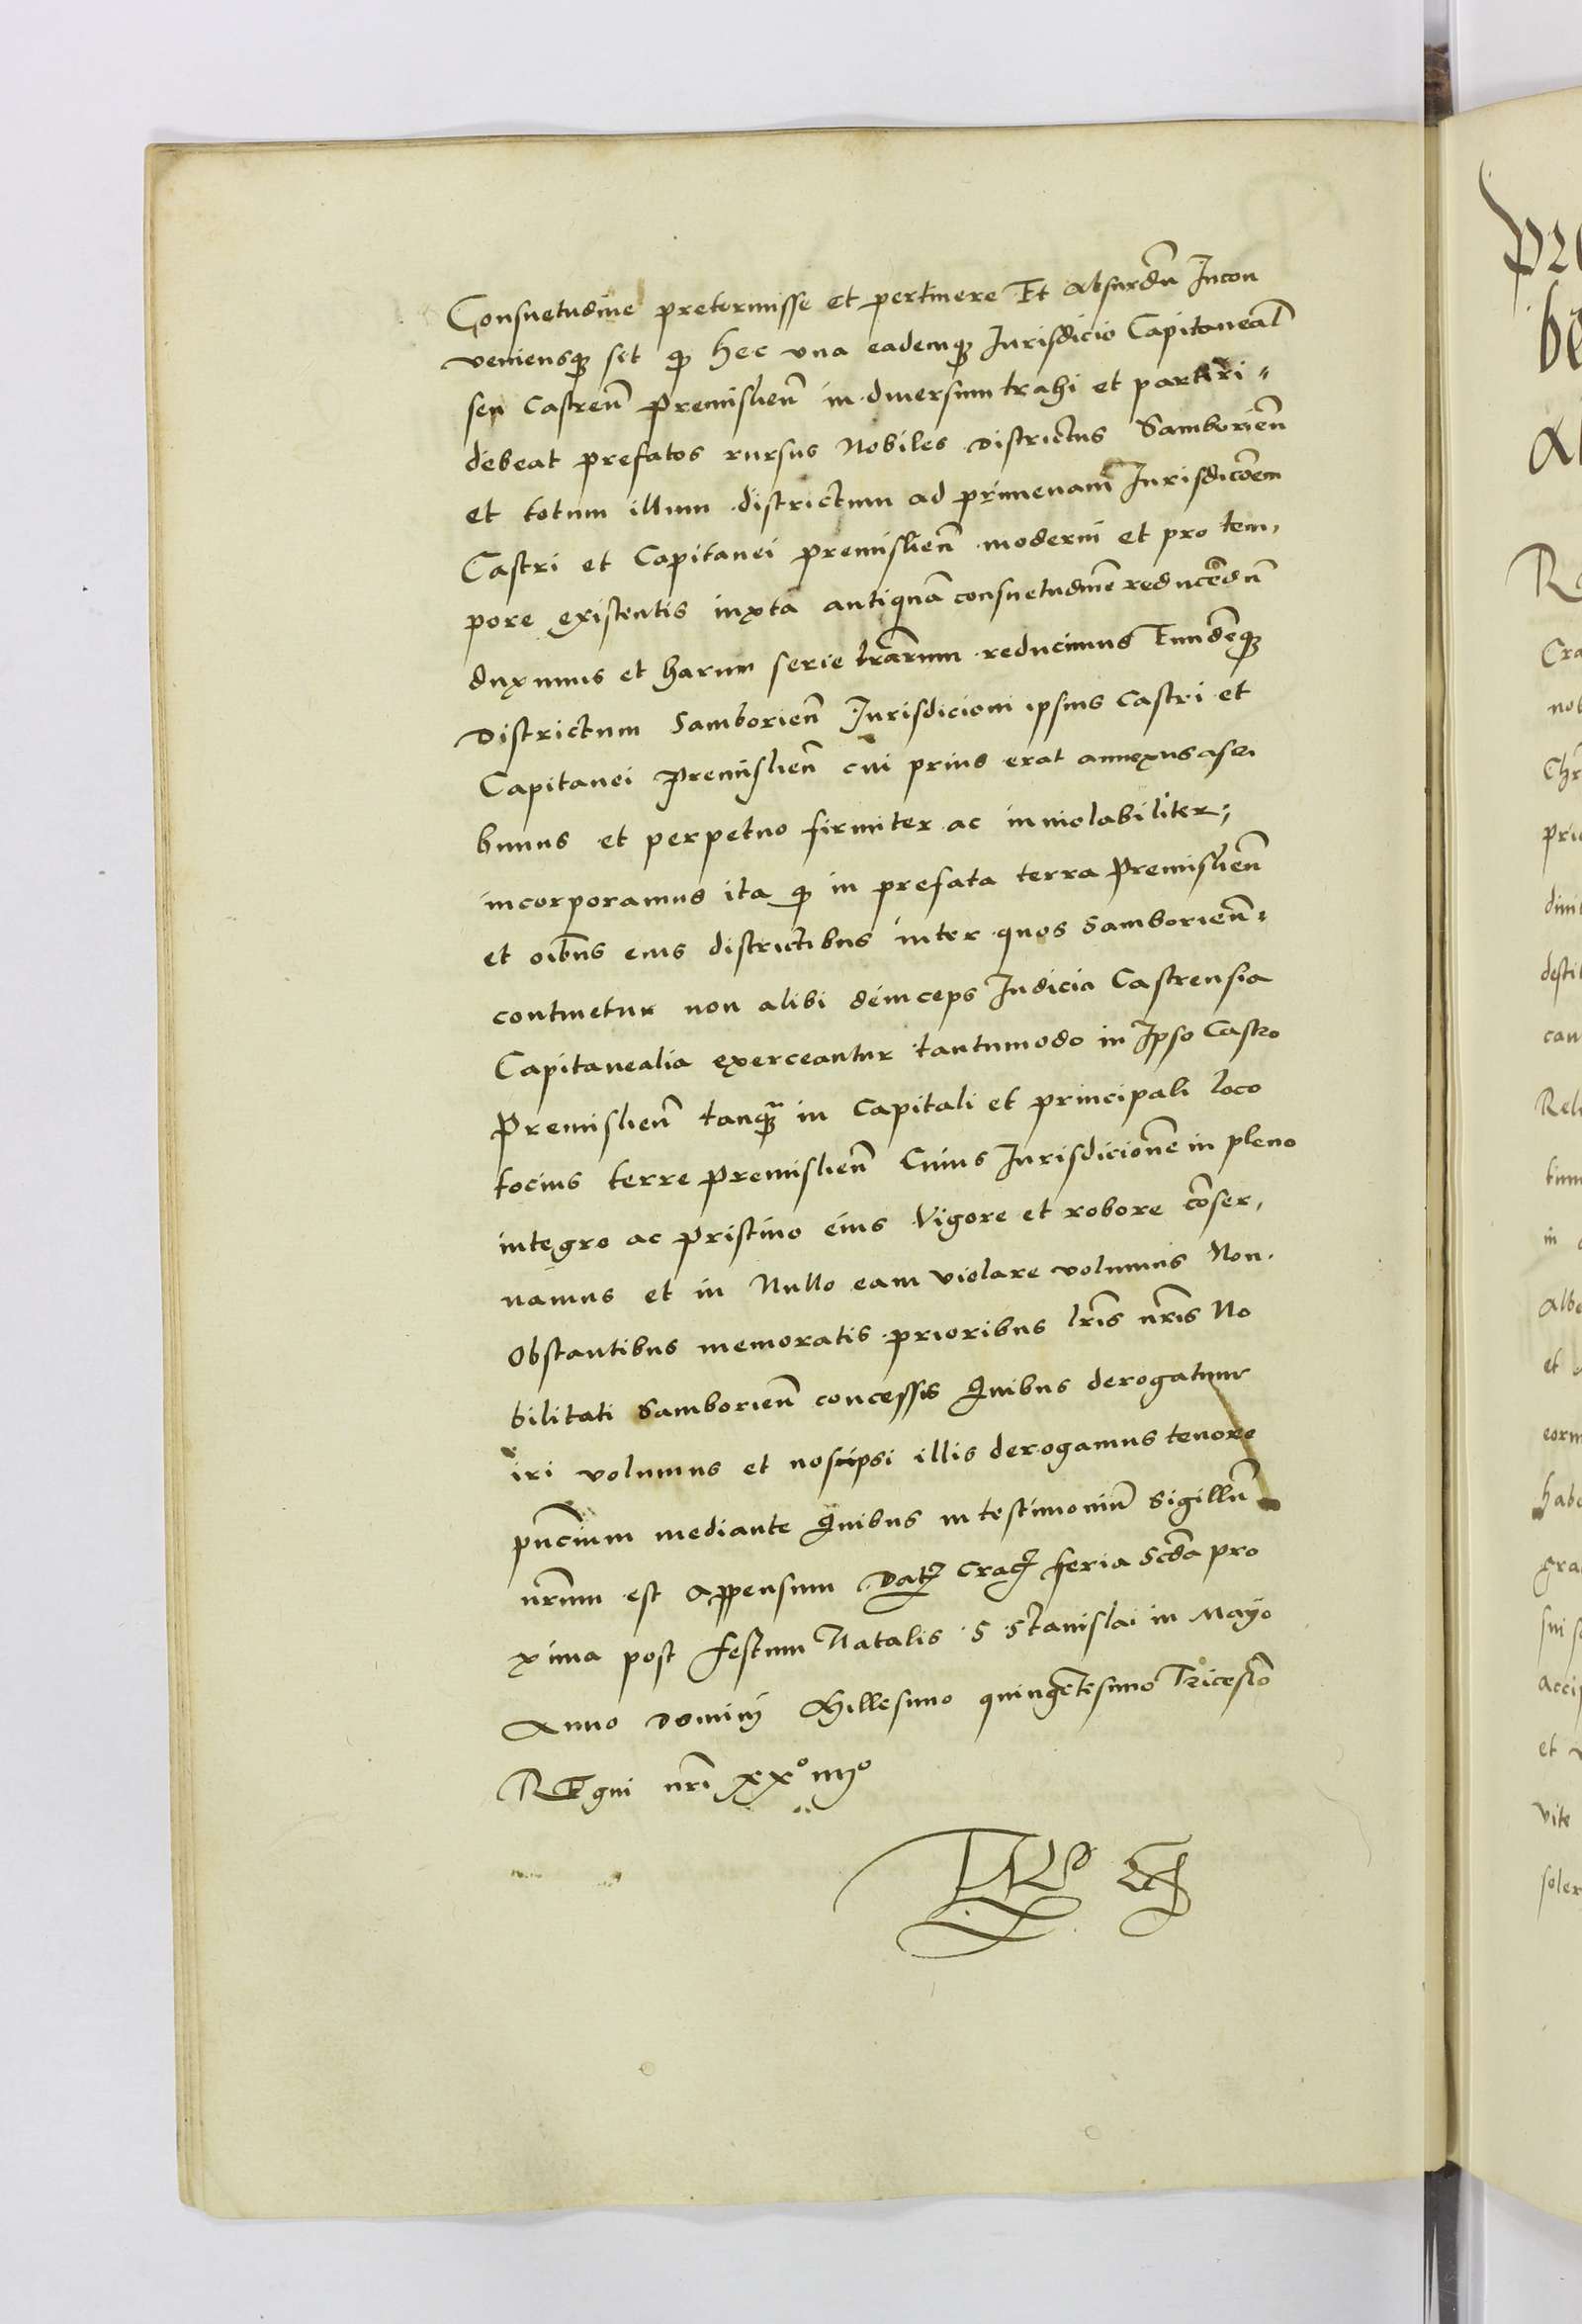 Consuetudine pretermisse et pertinere Et absurdũ Incon
veniensqꝫ sit qꝫ hec vna eademqꝫ Iurisdicio Capitaneal̃
seu Castreñ Premislieñ in diuersum trahi et partiri
debeat prefatos rursus Nobiles districtus Samborieñ
et totum illum districtum ad primeuam Iurisdicõem
Castri et Capitanei premislieñ moderni et pro tem,
pore existentis iuxta antiquã consuetudinẽ reducẽdũ
duximus et harum serie lrarum reducimus Eundẽqꝫ
districtum Samborieñ Iurisdicioni ipsius castri et
Capitanei Premislieñ cui prius erat annexus ascri
bimus et perpetuo firmiter ac inuiolabiliter,
incorporamus ita qꝫ in prefata terra Premislieñ
et oĩbus eius districtibus inter quos Samborieñ
continetur non alibi deinceps Iudicia Castrensia
Capitanealia exerceantur tantumodo in Ipso Castro
Premislieñ tanqꝫ in Capitali et principali loco
tocius terre premislieñ Cuius Iurisdicionẽ in pleno
integro ac pristino eius vigore et robore cõser,
uamus et in Nullo eam violare volumus Non
Obstantibus memoratis prioribus lrĩs nrĩs No
bilitati Samborieñ concessis Quibus derogatum
iri volumus et nosipsi illis derogamus tenore
pñcium mediante Quibus in testimoniũ sigillũ
nrũm est Appensum Datꝫ Cracꝫ feria Scďa pro
xima post festum Natalis S Stanislai in Mayo
Anno Dominj Millesimo quingẽtesimo Tricesĩo
REgni nrĩ xxº iiijº